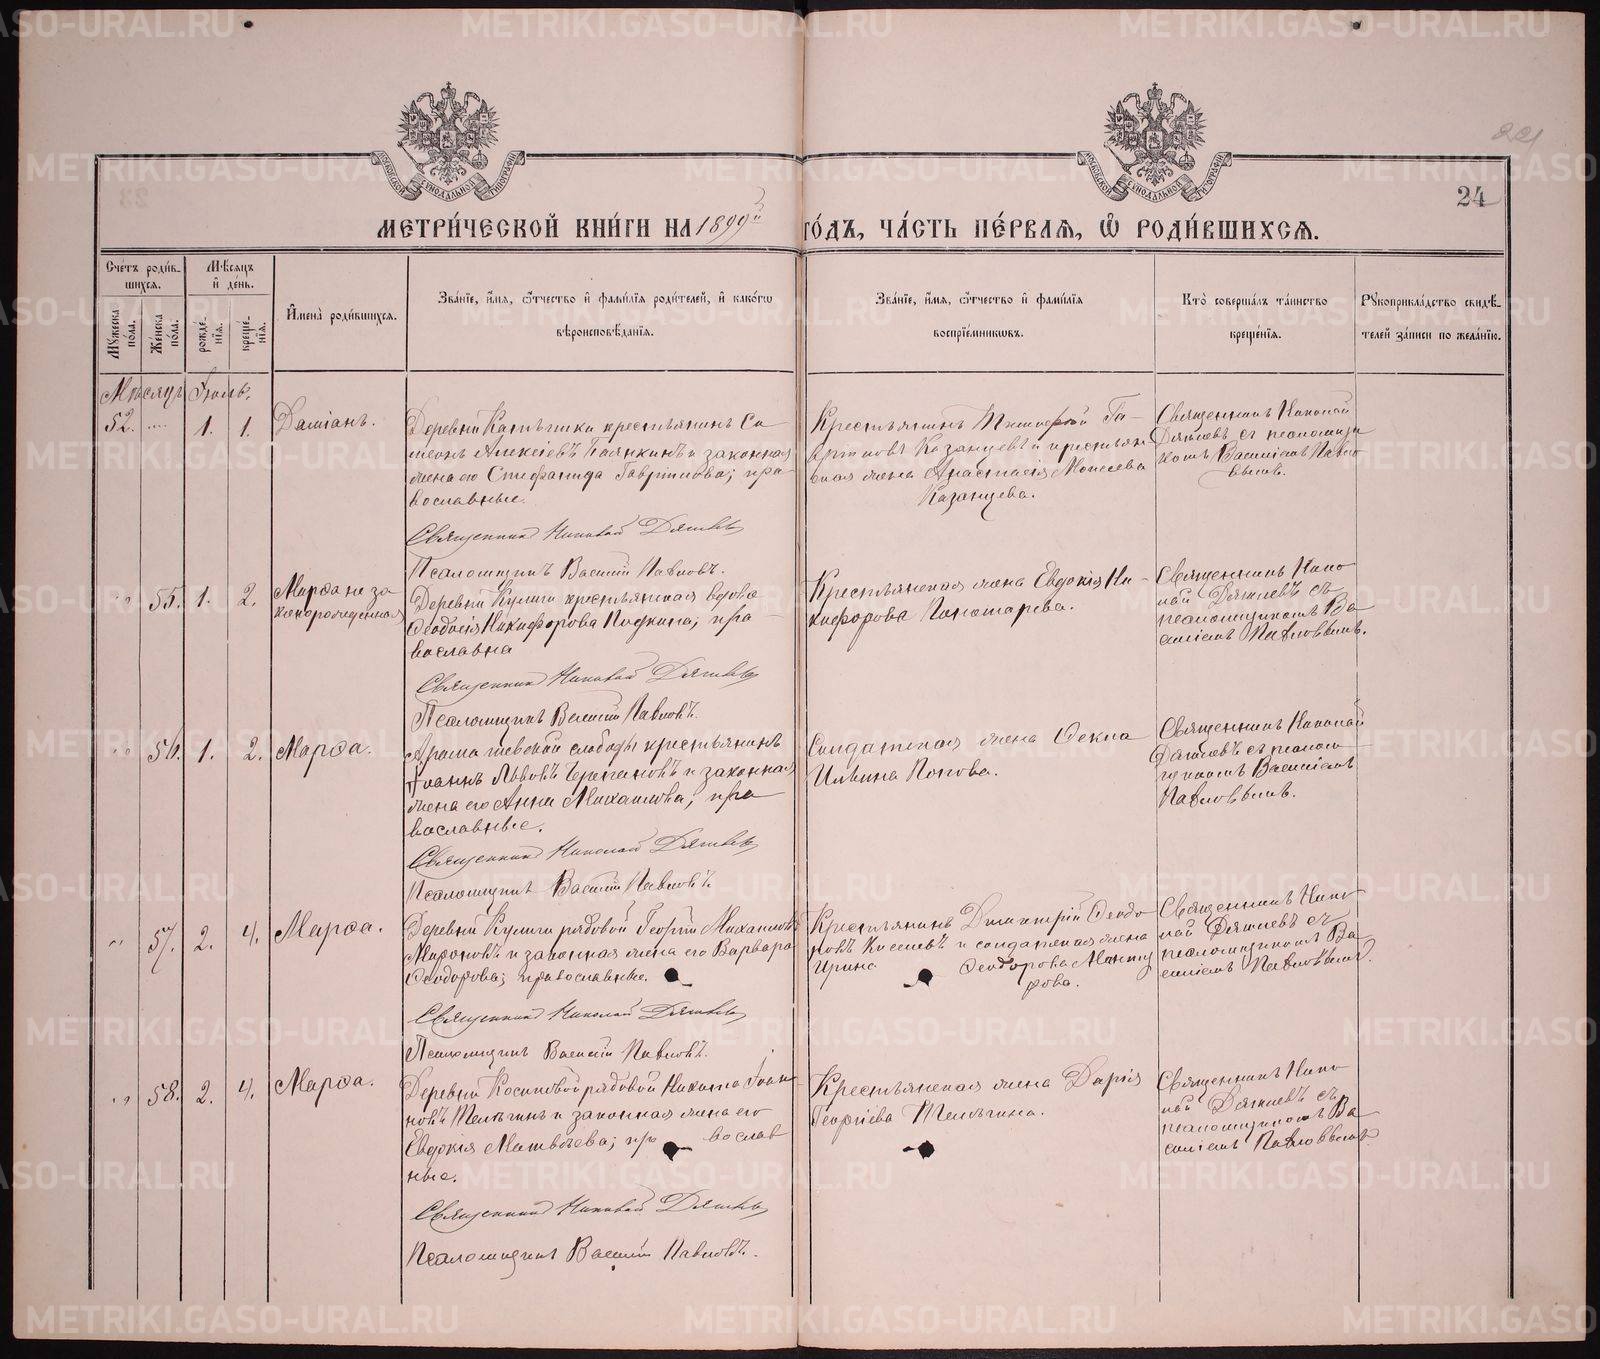 24
МЕТРИЧЕСКОЙ КНИГИ НА 1899й ГОДЪ, ЧАСТЬ ПЕРВАЯ, Ѡ РОДИВШИХСЯ.
Счетъ родившихся.
Мужеска пола.
Женска пола.
Мѣсяцъ и день.
рожденія.
крещенія.
Имена родившихся.
Званіе, имя, отчество и фамилія родителей, и какогѡ вѣроисповѣданія.
Званіе, имя, отчество и фамилія воспріемниковъ.
Кто совершалъ таинство крещенія.
Рукоприкладство свидѣтелей записи по желанію.
Мѣсяцъ Іюль.
52. 1. 1. Даміанъ.
крестьянинъ Си-
меонъ Алексіевъ и законная
жена его Стефанида Гавріилова; пра-
вославные.
Священникъ Николай
Псаломщикъ Василій Павловъ.
Крестьянинъ Тимофей
Казанцевъ и крестьян-
ская жена Анастасія Моисеева
Казанцева.
Священникъ Николай
съ псаломщи-
комъ Василіемъ Павло-
вымъ.
55. 1. 2. Марѳа не за-
коннорожденная
Деревни Кулиги крестьянская вдова
Ѳеодосія Никифорова; пра-
вославна
Священникъ Николай
Псаломщикъ Василій Павловъ.
Крестьянская жена Евдокія Ни-
кифорова Пономарева.
Священникъ Нико-
лай съ
псаломщикомъ Ва-
силіемъ Павловымъ.
56. 1. 2. Марѳа.
Арамашевской слободы крестьянинъ
Іоаннъ Львовъ Черепановъ и законная
жена его Анна Михаилова; пра-
вославные.
Священникъ Николай
Псаломщикъ Василій Павловъ.
Солдатская жена Ѳекла
Ильина Попова.
Священникъ Николай
съ псалом-
щикомъ Василіемъ
Павловымъ.
57. 2. 4. Марѳа.
Деревни Кулиги рядовой Георгій Михаиловъ
Мироновъ и законная жена его Варвара
Ѳеодорова; православные.
Священникъ Николай
Псаломщикъ Василій Павловъ.
Крестьянинъ Димитрій Ѳеодо-
ровъ и солдатская жена
Ирина Ѳеодорова
рова.
Священникъ Нико-
лай съ
псаломщикомъ Ва-
силіемъ Павловымъ.
58. 2. 4. Марѳа.
Деревни рядовой Никита Іоан-
новъ Телѣгинъ и законная жена его
Евдокія Матвѣева; пра вослав
ные.
Священникъ Николай
Псаломщикъ Василій Павловъ.
Крестьянская жена Дарія
Георгіева Телѣгина.
Священникъ Нико-
лай съ
псаломщикомъ Ва-
силіемъ Павловымъ
METRIKI.GASO-URAL.RU